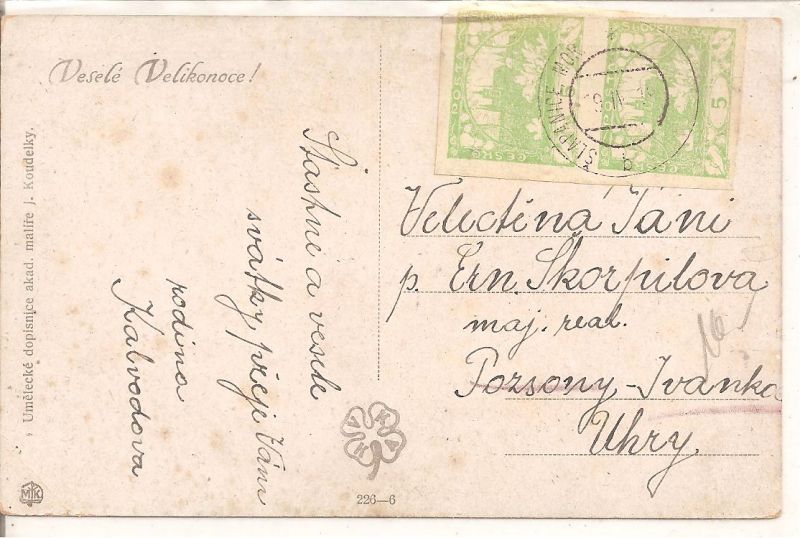 Veselé Velikonoce!
Umělecké dopisnice akad. malíře J. Koudelky.
Šťastné a veselé
svátky přeje Vám
rodina
Kalvodova
226—6
5
ŠLAPANICE MOR.
Velectěná Paní
p. Ern. Škorpilova
maj. real.
Pozsony-Ivanka
Uhry